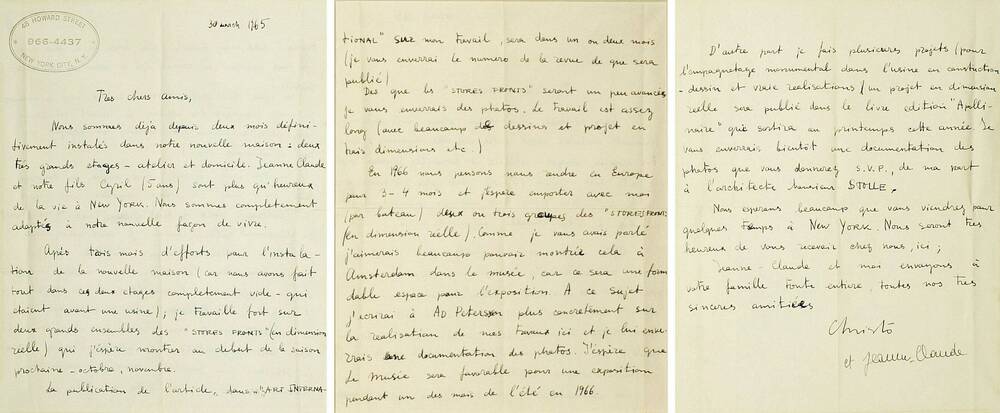 48 HOWARD STREET
966-4437
NEW YORK CITY, N.Y.
30 march 1965
Tres chers amis,
Nous sommes déja depuis deux mois défini-
tivement instalés dans notre nouvelle maison: deux
très grands etages - atelier et domicile. Jeanne Claude
et notre fils Cyril (5 ans) sont plus qu'heureux
de la vie à New York. Nous sommes completement
adaptés à notre nouvelle façon de vivre.
Après trois mois d'efforts pour l'instala-
tion de la nouvelle maison (car nous avons fait
tout dans ces deux etages completement vide - qui
etaient avant une usine); je travaille fort sur
deux grands ensembles des "STORES FRONTS" (en dimension
réelle) qui j'éspère montrer au debut de la saison
prochaine - octobre, novembre.
La publication de l'article, dans "ART INTERNA-
TIONAL" sur mon travail, sera dans un ou deux mois
(je vous enverrai le numero de la revue de que sera
publié)
Des que les "STORES FRONTS" seront un peu avancés
je vous enverrais des photos. Le travail est assez
long (avec beaucoup de dessins et projet en
trois dimensions etc.)
En 1966 nous pensons nous rendre en Europe
pour 3-4 mois et j'éspère emporter avec moi
(par bateau) deux ou trois groupes des "STORES FRONTS"
(en dimension réelle). Comme je vous avais parlé
j'aimerais beaucoup pouvoir montrer cela à
Amsterdam dans le musée, car ce sera une formi
dable espace pour l'exposition. A ce sujet
j'ecrirai à AD Petersen plus concretement sur
la realisation de mes travaux ici et je lui enve-
rrais une documentation des photos. J'éspère que
le Musée sera favorable pour une exposition
pendant un des mois de l'été en 1966.
D'autre part je fais plusieures projets (pour
l'empaquetage monumental dans l'usine en constuction
- dessin et vraie realisations / un projet en dimension
réelle sera publié dans le livre edition "Apolli-
naire" qui sortira au printemps cette année. Je
vous enverrai bientôt une documentation des
photos que vous donnerez S.V.P., de ma part
à l'architecte monsieur STOLLE.
Nous esperons beaucoup que vous viendrez pour
quelques temps à New York. Nous seront très
heureux de vous recevoir chez nous, ici;
Jeanne-Claude et moi envoyons à
votre famille toute entiere, toutes nos très
sinceres amitiées
Christo
et Jeanne-Claude